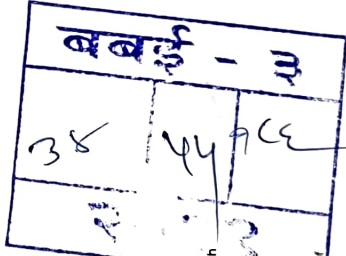 बबई - ३
३४ ५५ १८६
२ ३